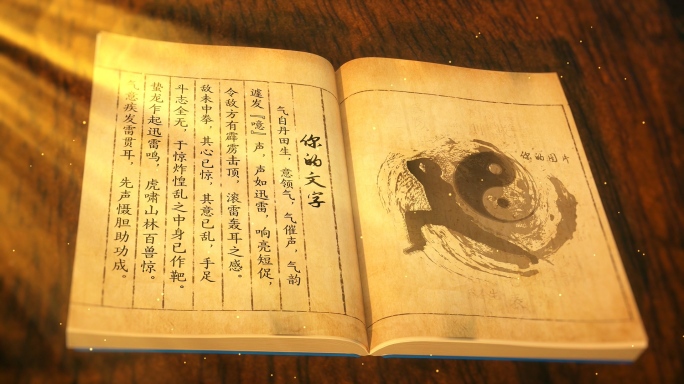 你的文字
气自丹田生，意领气，气催声，气韵
遽发『噫』声，声如迅雷，响亮短促，
令敌方有霹雳击顶、滚雷轰耳之感。
敌未中拳，其心已惊，其意已乱，手足
斗志全无，于惊炸惶乱之中身已作靶。
蛰龙乍起迅雷鸣，虎啸山林百兽惊。
气意疾发雷贯耳，先声慑胆助功成。
你的图片